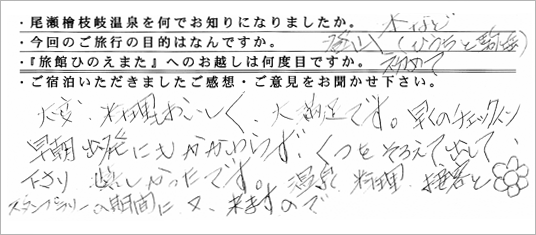 ・尾瀬檜枝岐温泉を何でお知りになりましたか。 本など
・今回のご旅行の目的はなんですか。 登山(ひうちと駒岳)
・『旅館ひのえまた』へのお越しは何度目ですか。 初めて
・ご宿泊いただきましたご感想・ご意見をお聞かせ下さい。
大変、料理もおいしく、大満足です。早くのチェックイン
早朝出発にもかかわらず、くつをそろえて出して、
下さり 嬉しかったです。温泉、料理、接客と
スタンプラリーの期間に又、来ますので